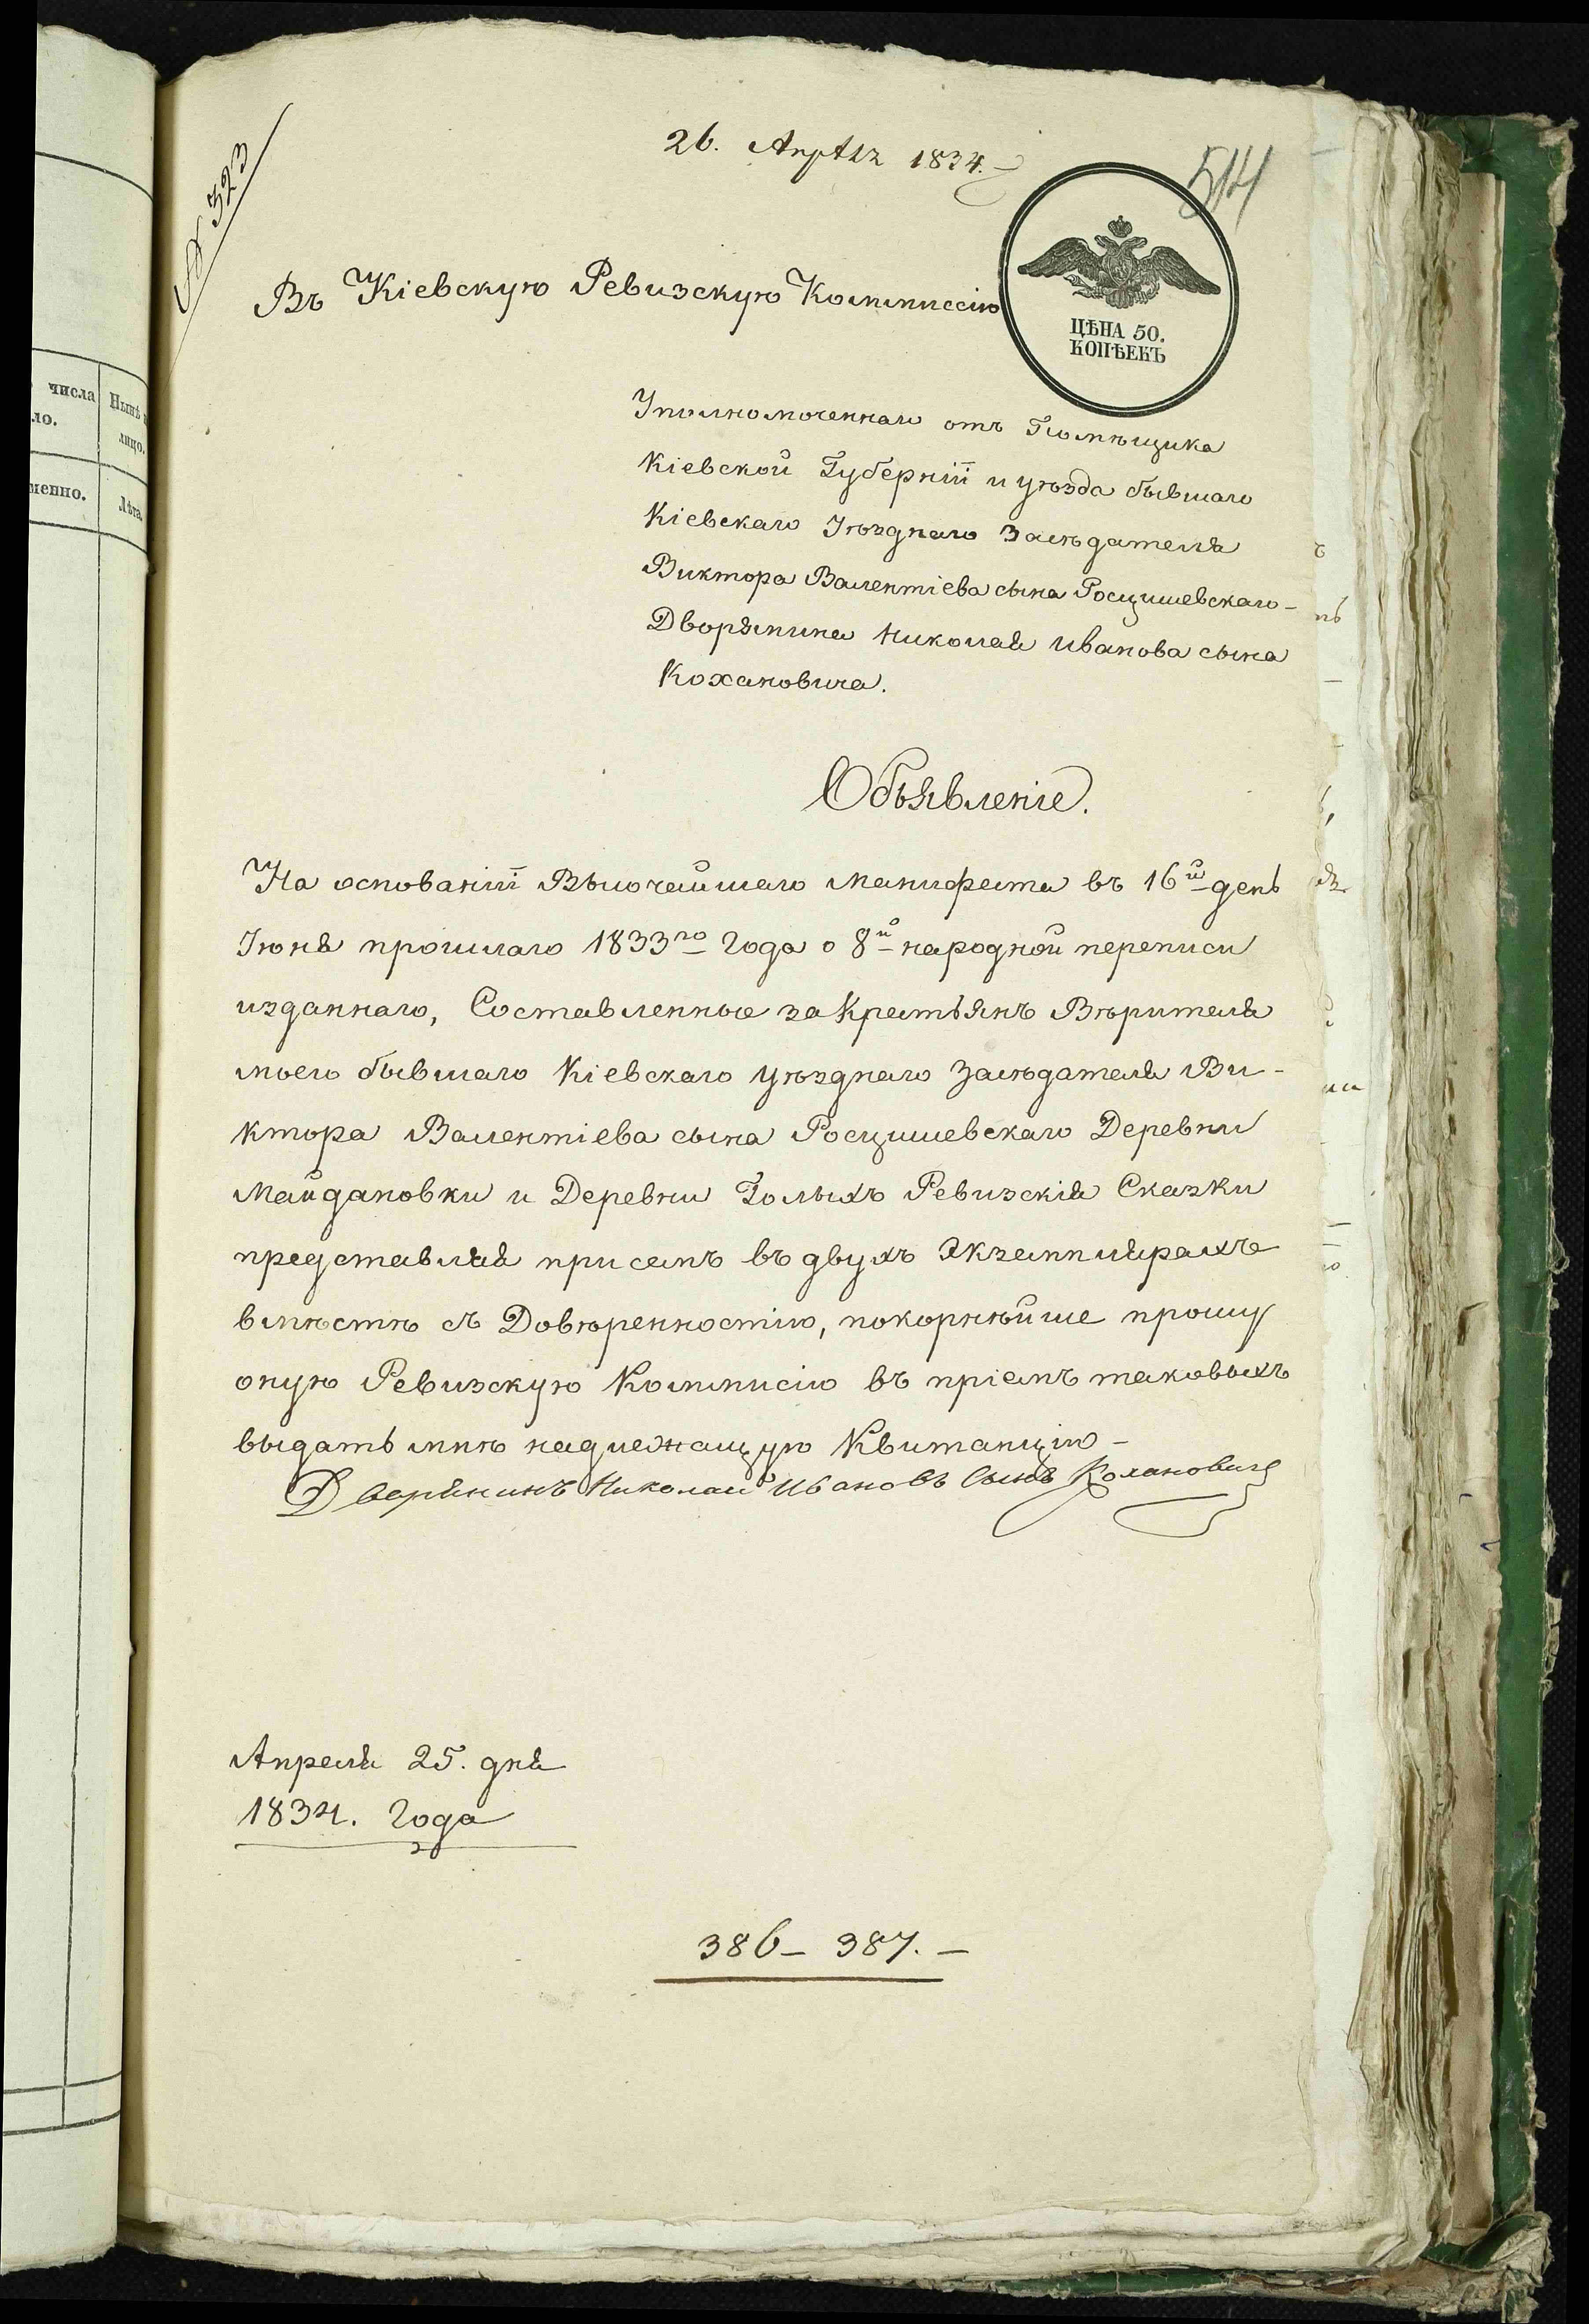 № 323
26. Апрѣлѧ 1834.
514
Въ Кіевскую Ревизскую Коммиссію
ЦѢНА 50.
КОПѢЕКЪ
Уполномоченнаго отъ Помѣщика
Кіевской Губерніи и уѣзда бывшаго
Кіевскаго Уѣзднаго Засѣдателя
Виктора Валентіева сына Росцишевскаго –
Дворянина Николая Иванова сына
Кохановича.
Объявленіе.
На основаніи Высочайшаго Манифеста въ 16й день
Іюня прошлаго 1833го года о 8й народной переписи
изданнаго, Составленные за Крестьянъ Вѣрителя
моего бывшаго Кіевскаго уѣзднаго Засѣдателя Ви-
ктора Валентіева сына Росцишевскаго Деревни
Майдановки и Деревни Голыхъ Ревизскія Сказки
представляя при семъ въ двухъ Экземплярахъ
вмѣстѣ съ Довѣренностію, покорнѣйше прошу
оную Ревизскую Коммисію въ пріемъ таковыхъ
выдать мнѣ надлежащую Квитанцію –
Дворянинъ Николай Ивановъ Сынъ Кохановичъ
Апреля 25. дня
1834. Года
386 – 387. –
числа
ло.
Нынѣ
лицо.
менно.
Лѣта.